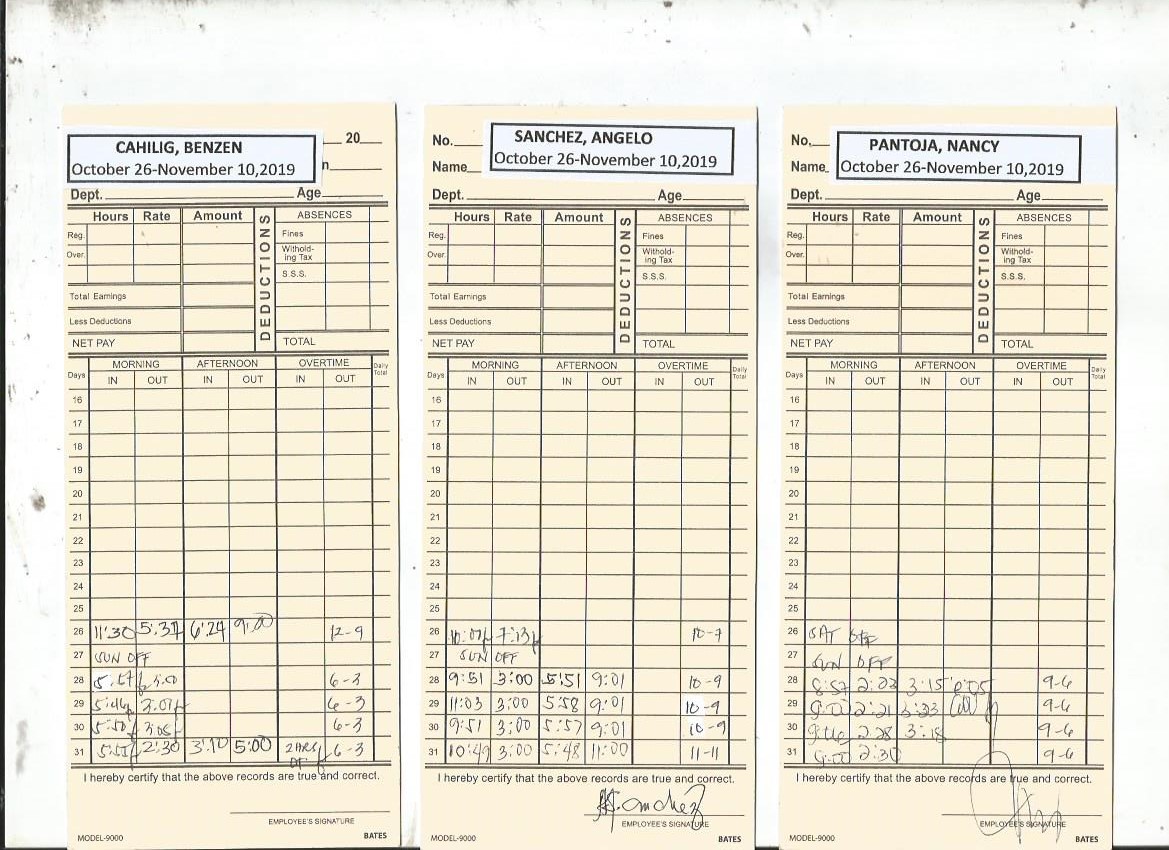 20
CAHILIG, BENZEN
October 26-November 10,2019
n.
Dept. Age
Hours Rate Amount DEDUCTIONS ABSENCES
Reg. Fines
Over. Withold-
ing Tax
S.S.S.
Total Earnings
Less Deductions
NET PAY TOTAL
Days MORNING AFTERNOON OVERTIME Daily Total
IN OUT IN OUT IN OUT
16
17
18
19
20
21
22
23
24
25
26 11:30 5:37 6:24 9:00 12-9
27 SUN OFF
28 6-3
29 6-3
30 6-3
31 2:30 3:10 5:00 2HRS OT 6-3
I hereby certify that the above records are true and correct.
EMPLOYEE'S SIGNATURE
MODEL-9000 BATES
No.
SANCHEZ, ANGELO
Name October 26-November 10,2019
Dept. Age
Hours Rate Amount DEDUCTIONS ABSENCES
Reg. Fines
Over. Withold-
ing Tax
S.S.S.
Total Earnings
Less Deductions
NET PAY TOTAL
Days MORNING AFTERNOON OVERTIME Daily Total
IN OUT IN OUT IN OUT
16
17
18
19
20
21
22
23
24
25
26 10-7
27 SUN OFF
28 9:51 3:00 5:51 9:01 10-9
29 11:03 3:00 5:58 9:01 10-9
30 9:51 3:00 5:57 9:01 10-9
31 10:49 3:00 5:48 11:00 11-11
I hereby certify that the above records are true and correct.
Sanchez
EMPLOYEE'S SIGNATURE
MODEL-9000 BATES
No.
PANTOJA, NANCY
Name October 26-November 10,2019
Dept. Age
Hours Rate Amount DEDUCTIONS ABSENCES
Reg. Fines
Over. Withold-
ing Tax
S.S.S.
Total Earnings
Less Deductions
NET PAY TOTAL
Days MORNING AFTERNOON OVERTIME Daily Total
IN OUT IN OUT IN OUT
16
17
18
19
20
21
22
23
24
25
26 SAT OFF
27 SUN OFF
28 8:57 2:23 3:15 6:05 9-6
29 2:21 3:23 9-6
30 2:28 3:18 9-6
31 2:30 9-6
I hereby certify that the above records are true and correct.
EMPLOYEE'S SIGNATURE
MODEL-9000 BATES